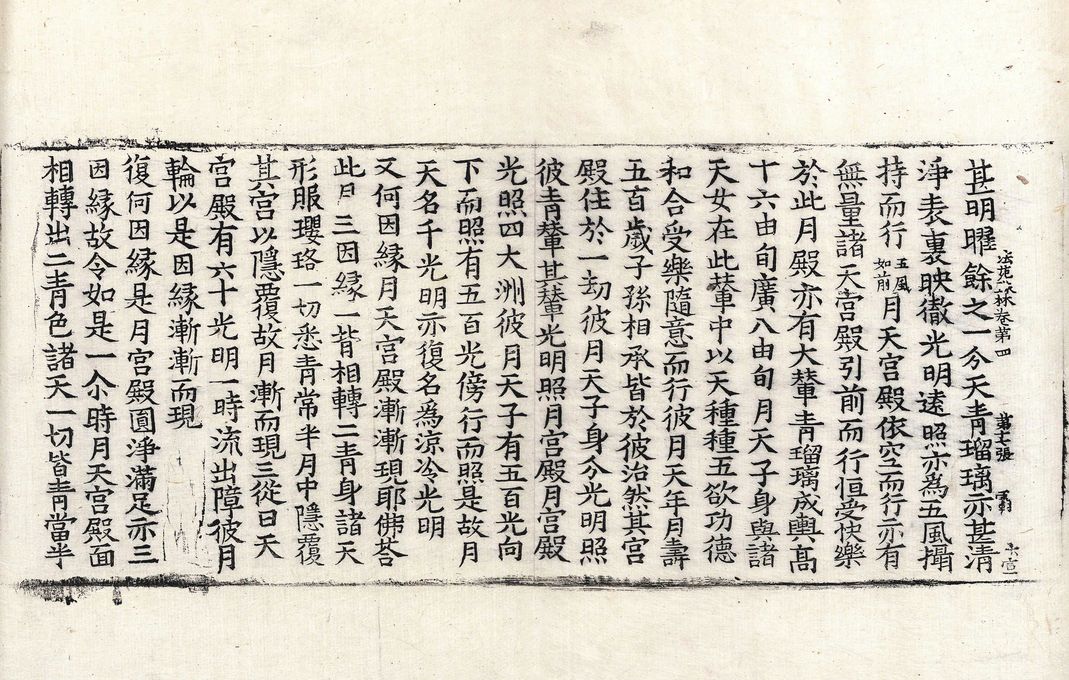 甚明曜餘之一分天青瑠璃亦甚清
法苑珠林卷第四 第十七張
淨表裏映徹光明遠照亦為五風攝
持而行五風如前月天宮殿依空而行亦有
無量諸天宮殿引前而行恒受快樂
於此月殿亦有大輦青瑠璃成輿高
十六由旬廣八由旬月天子身與諸
天女在此輦中以天種種五欲功德
和合受樂隨意而行彼月天年月壽
五百歲子孫相承皆於彼治然其宮
殿住於一劫彼月天子身分光明照
彼青輦其輦光明照月宮殿月宮殿
光照四大洲彼月天子有五百光向
下而照有五百光傍行而照是故月
天名千光明亦復名為涼冷光明
又何因緣月天宮殿漸漸現耶佛荅
此月三因緣一背相轉二青身諸天
形服瓔珞一切悉青常半月中隱覆
其宮以隱覆故月漸而現三從日天
宮殿有六十光明一時流出障彼月
輪以是因緣漸漸而現
復何因緣是月宮殿圓淨滿足亦三
因緣故令如是一尒時月天宮殿面
相轉出二青色諸天一切皆青當半